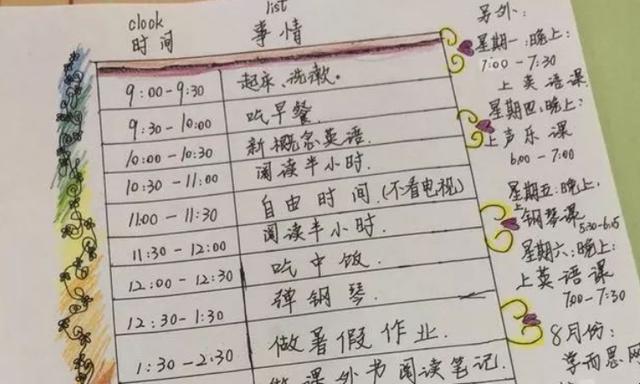 clook list
时间 事情
9:00-9:30 起床、洗漱。
9:30-10:00 吃早餐
10:00-10:30 新概念英语.
10:30-11:00 阅读半小时.
11:00-11:30 自由时间.(不看电视)
11:30-12:00 阅读半小时.
12:00-12:30 吃中饭.
12:30-1:30 弹钢琴.
1:30-2:30 做暑假作业.
做课外书阅读笔记.
另外:
星期一:晚上:
7:00-7:30
上英语课
星期四:晚上:
上声乐课
6:00-7:00
星期五:晚上,
上钢琴课 5:30-6:15
星期六:晚上:
上英语课
7:00-7:30
8月份:
学而思网